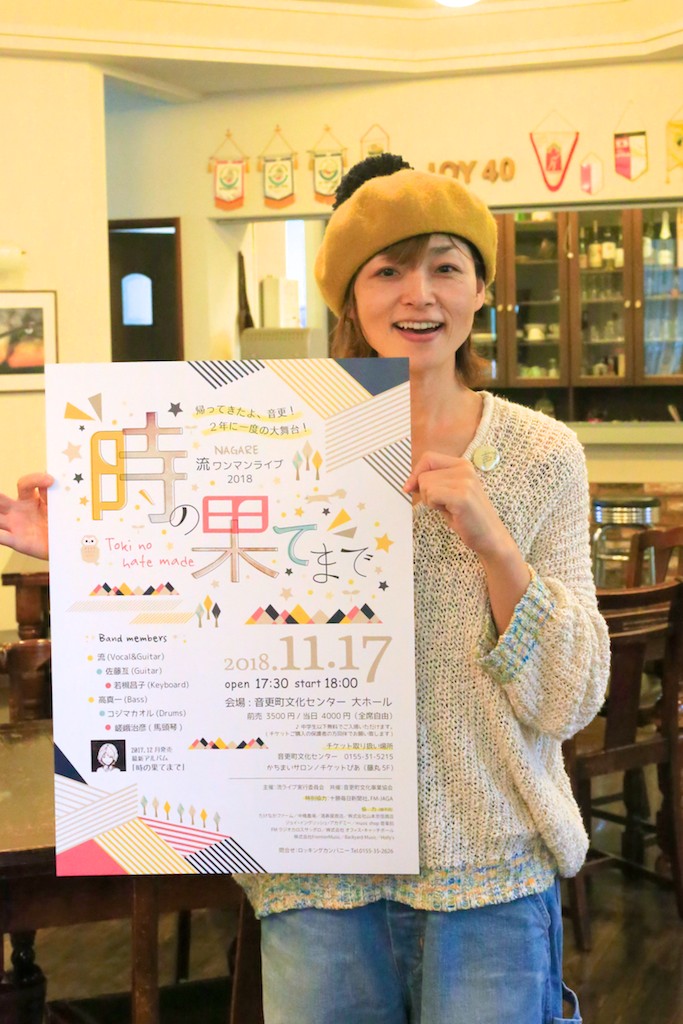 JOY 40
帰ってきたよ、音更！
2年に一度の大舞台！
NAGARE
流 ワンマンライブ
2018
時の果てまで
Toki no
hate made
Band members
流 (Vocal&Guitar)
佐藤亙 (Guitar)
若槻呂子 (Keyboard)
高真一 (Bass)
コジマカオル (Drums)
嵯峨治彦 (馬頭琴)
2017.12月発売
最新アルバム
「時の果てまで」
2018.11.17
open 17:30 start 18:00
会場：音更町文化センター 大ホール
前売 3500円 / 当日 4000円 (全席自由)
チケット取り扱い場所
音更町文化センター 0155-31-5215
かちまいサロン / チケットぴあ (藤丸5F)
主催：流ライブ実行委員会 共催：音更町文化事業協会
特別協力：十勝毎日新聞社、FM-JAGA
問合せ：ロッキングカンパニー Tel.0155-35-2626